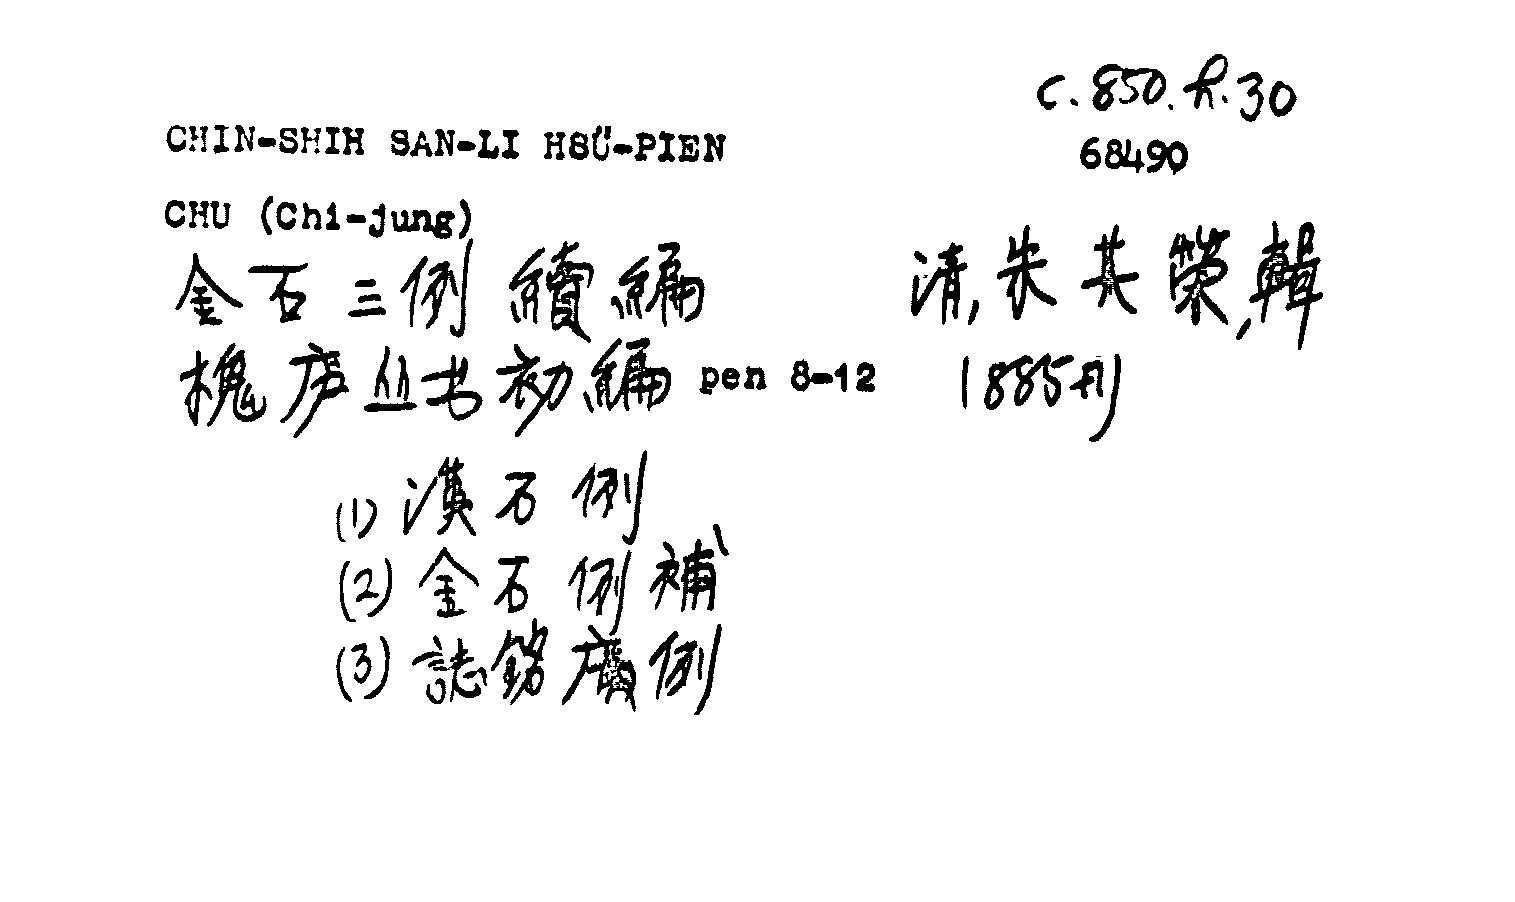 C.850.h.30
68490
CHIN-SHIH SAN-LI HSÜ-PIEN
CHU (Chi-jung)
金石三例續編 清,朱其榮,輯
槐庐丛书初編 pen 8-12 1885刊
(1) 漢石例
(2) 金石例補
(3) 誌銘廣例